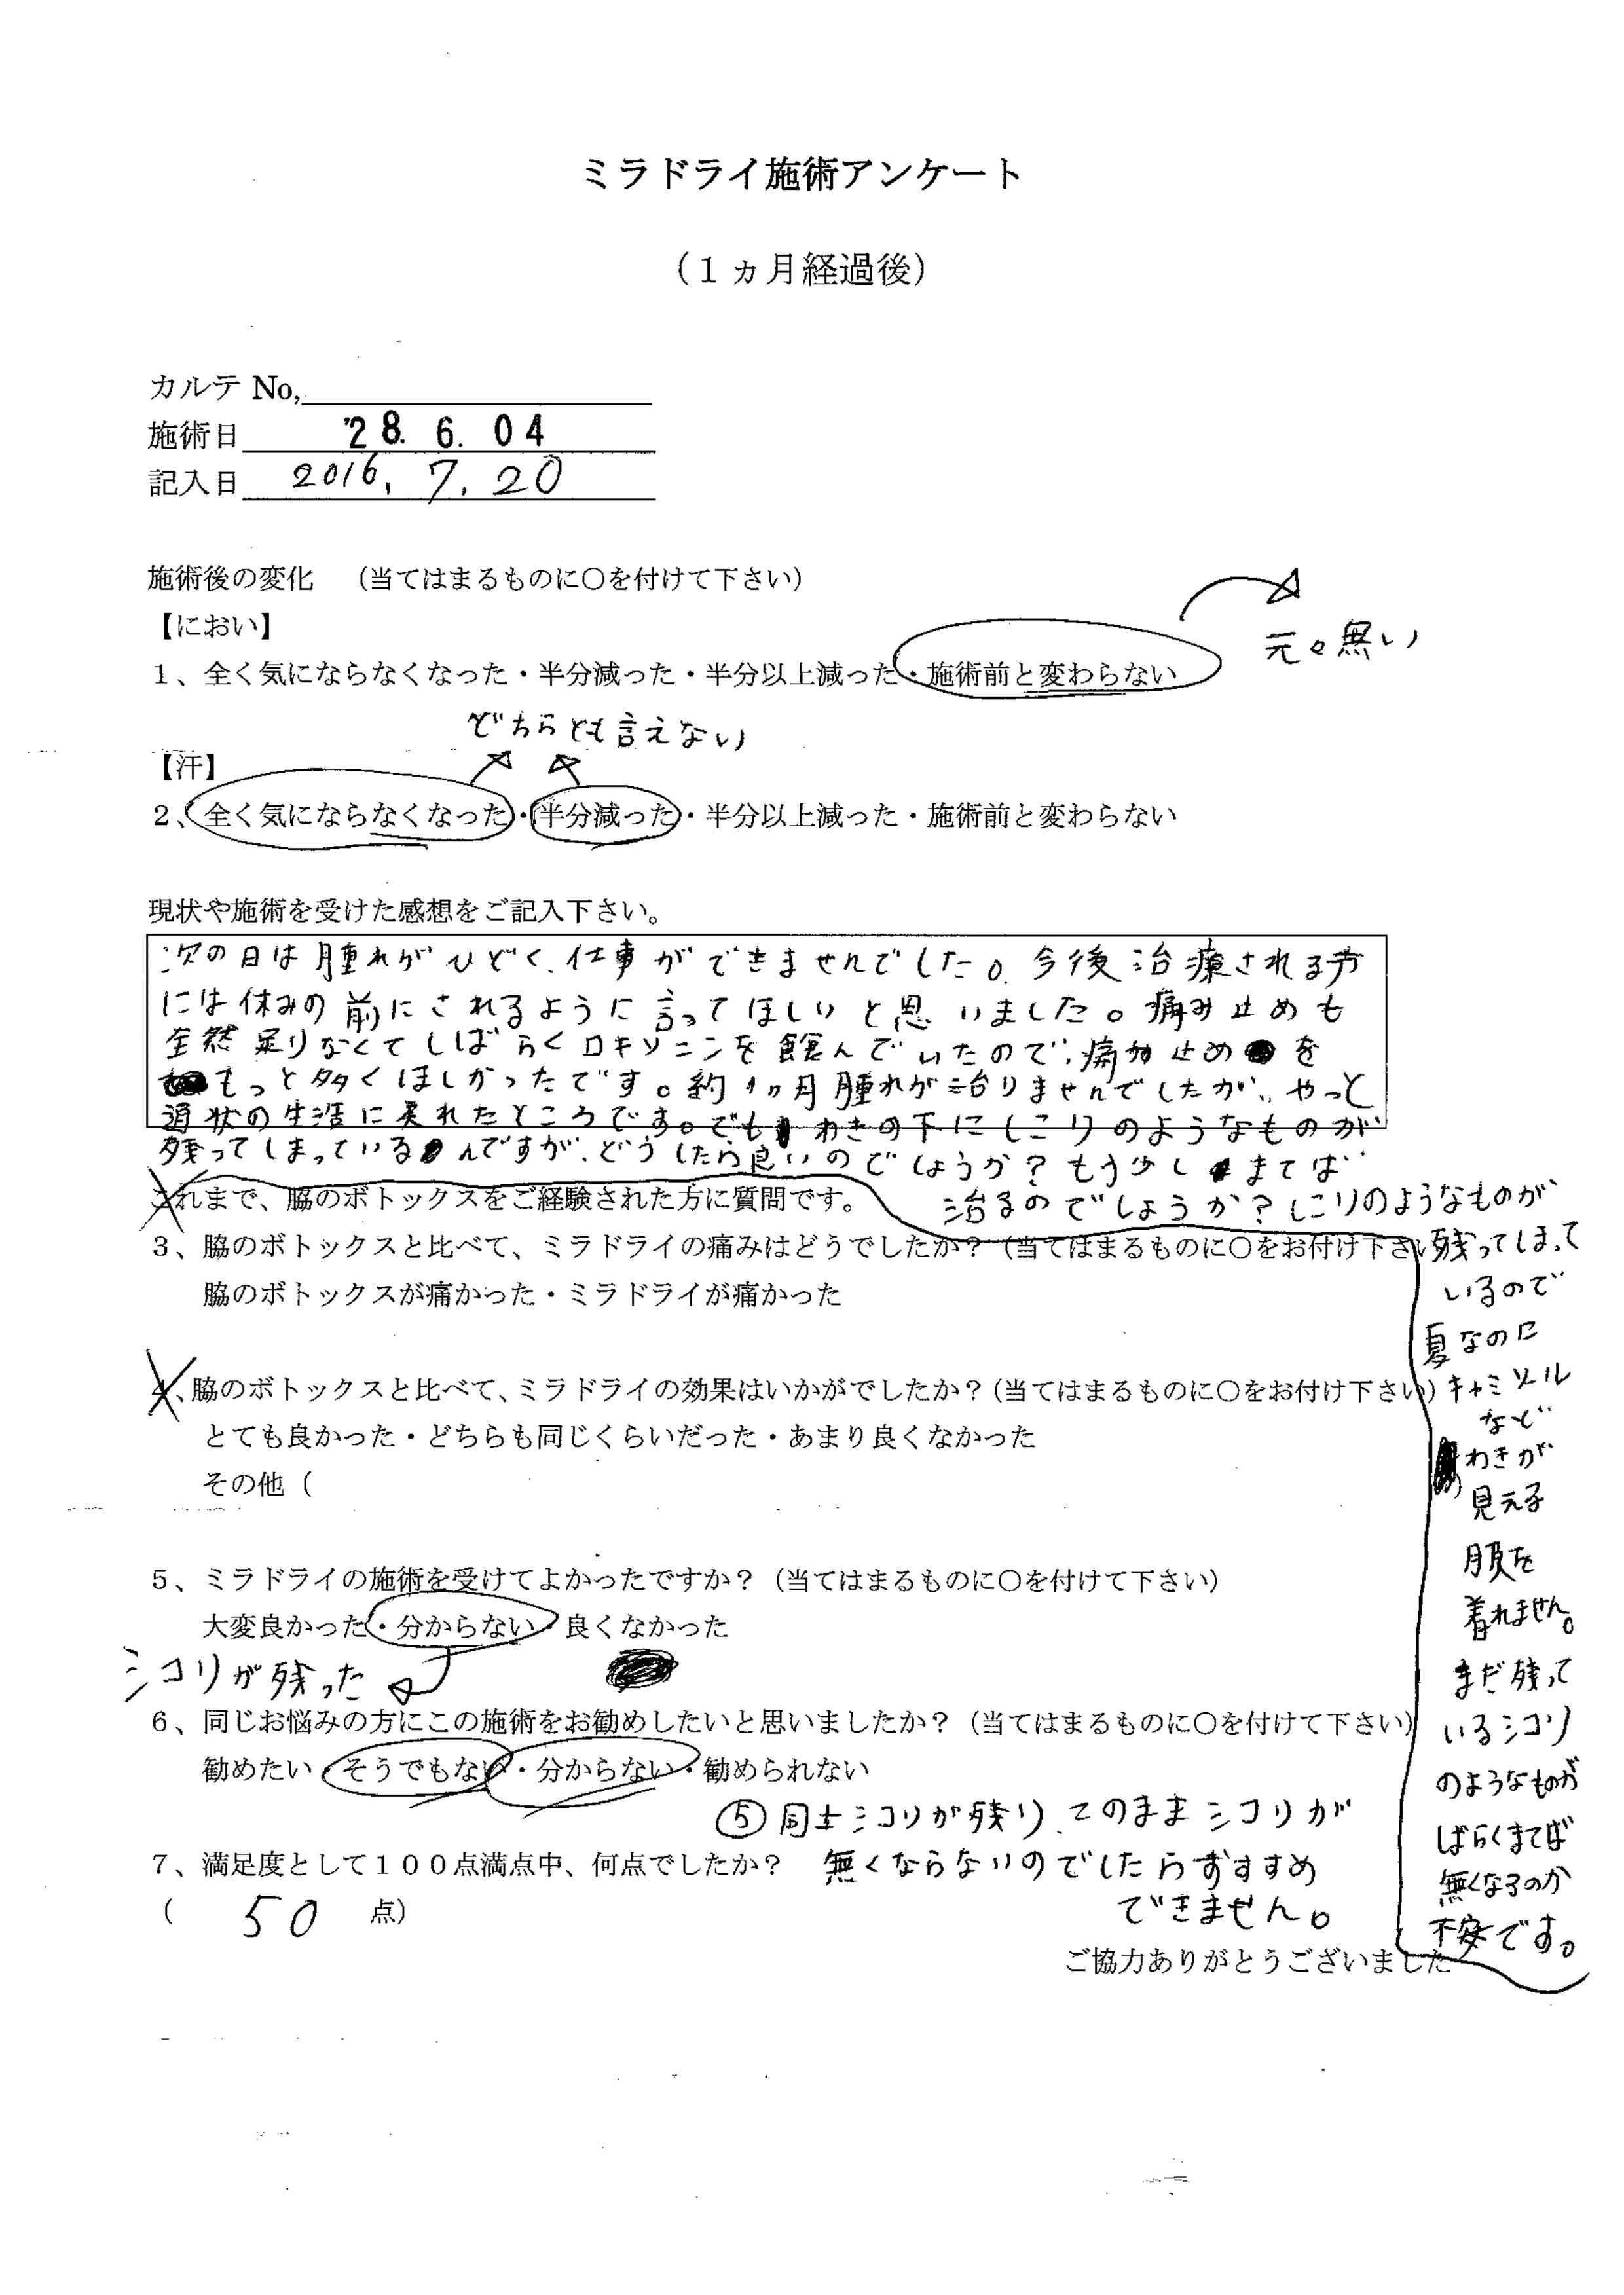 ミラドライ施術アンケート
（１ヵ月経過後）
カルテ No,
施術日 '28. 6. 04
記入日 2016, 7. 20
施術後の変化　（当てはまるものに〇を付けて下さい）
【におい】
元々無い
１、全く気にならなくなった・半分減った・半分以上減った・施術前と変わらない
どちらとも言えない
【汗】
２、全く気にならなくなった・半分減った・半分以上減った・施術前と変わらない
現状や施術を受けた感想をご記入下さい。
次の日は腫れがひどく、仕事ができませんでした。今後治療される方
には休みの前にされるように言ってほしいと思いました。痛み止めも
全然足りなくてしばらくロキソニンを飲んでいたので、痛み止めを
もっと多くほしかったです。約1ヵ月腫れが治りませんでしたが、やっと
通状の生活に戻れたところです。でもわきの下にしこりのようなものが
残ってしまっているんですが、どうしたら良いのでしょうか？もう少しまてば
治るのでしょうか？しこりのようなものが
残ってしまって
いるので
夏なのに
キャミソール
など
わきが
見える
服を
着れません。
まだ残って
いるシコリ
のようなものが
しばらくまてば
無くなるのか
不安です。
これまで、脇のボトックスをご経験された方に質問です。
３、脇のボトックスと比べて、ミラドライの痛みはどうでしたか？（当てはまるものに〇をお付け下さい
脇のボトックスが痛かった・ミラドライが痛かった
４、脇のボトックスと比べて、ミラドライの効果はいかがでしたか？（当てはまるものに〇をお付け下さい）
とても良かった・どちらも同じくらいだった・あまり良くなかった
その他（
５、ミラドライの施術を受けてよかったですか？（当てはまるものに〇を付けて下さい）
大変良かった・分からない・良くなかった
シコリが残った
６、同じお悩みの方にこの施術をお勧めしたいと思いましたか？（当てはまるものに〇を付けて下さい）
勧めたい・そうでもない・分からない・勧められない
⑤同士シコリが残り、このままシコリが
無くならないのでしたらおすすめ
できません。
７、満足度として１００点満点中、何点でしたか？
（　50　点）
ご協力ありがとうございました